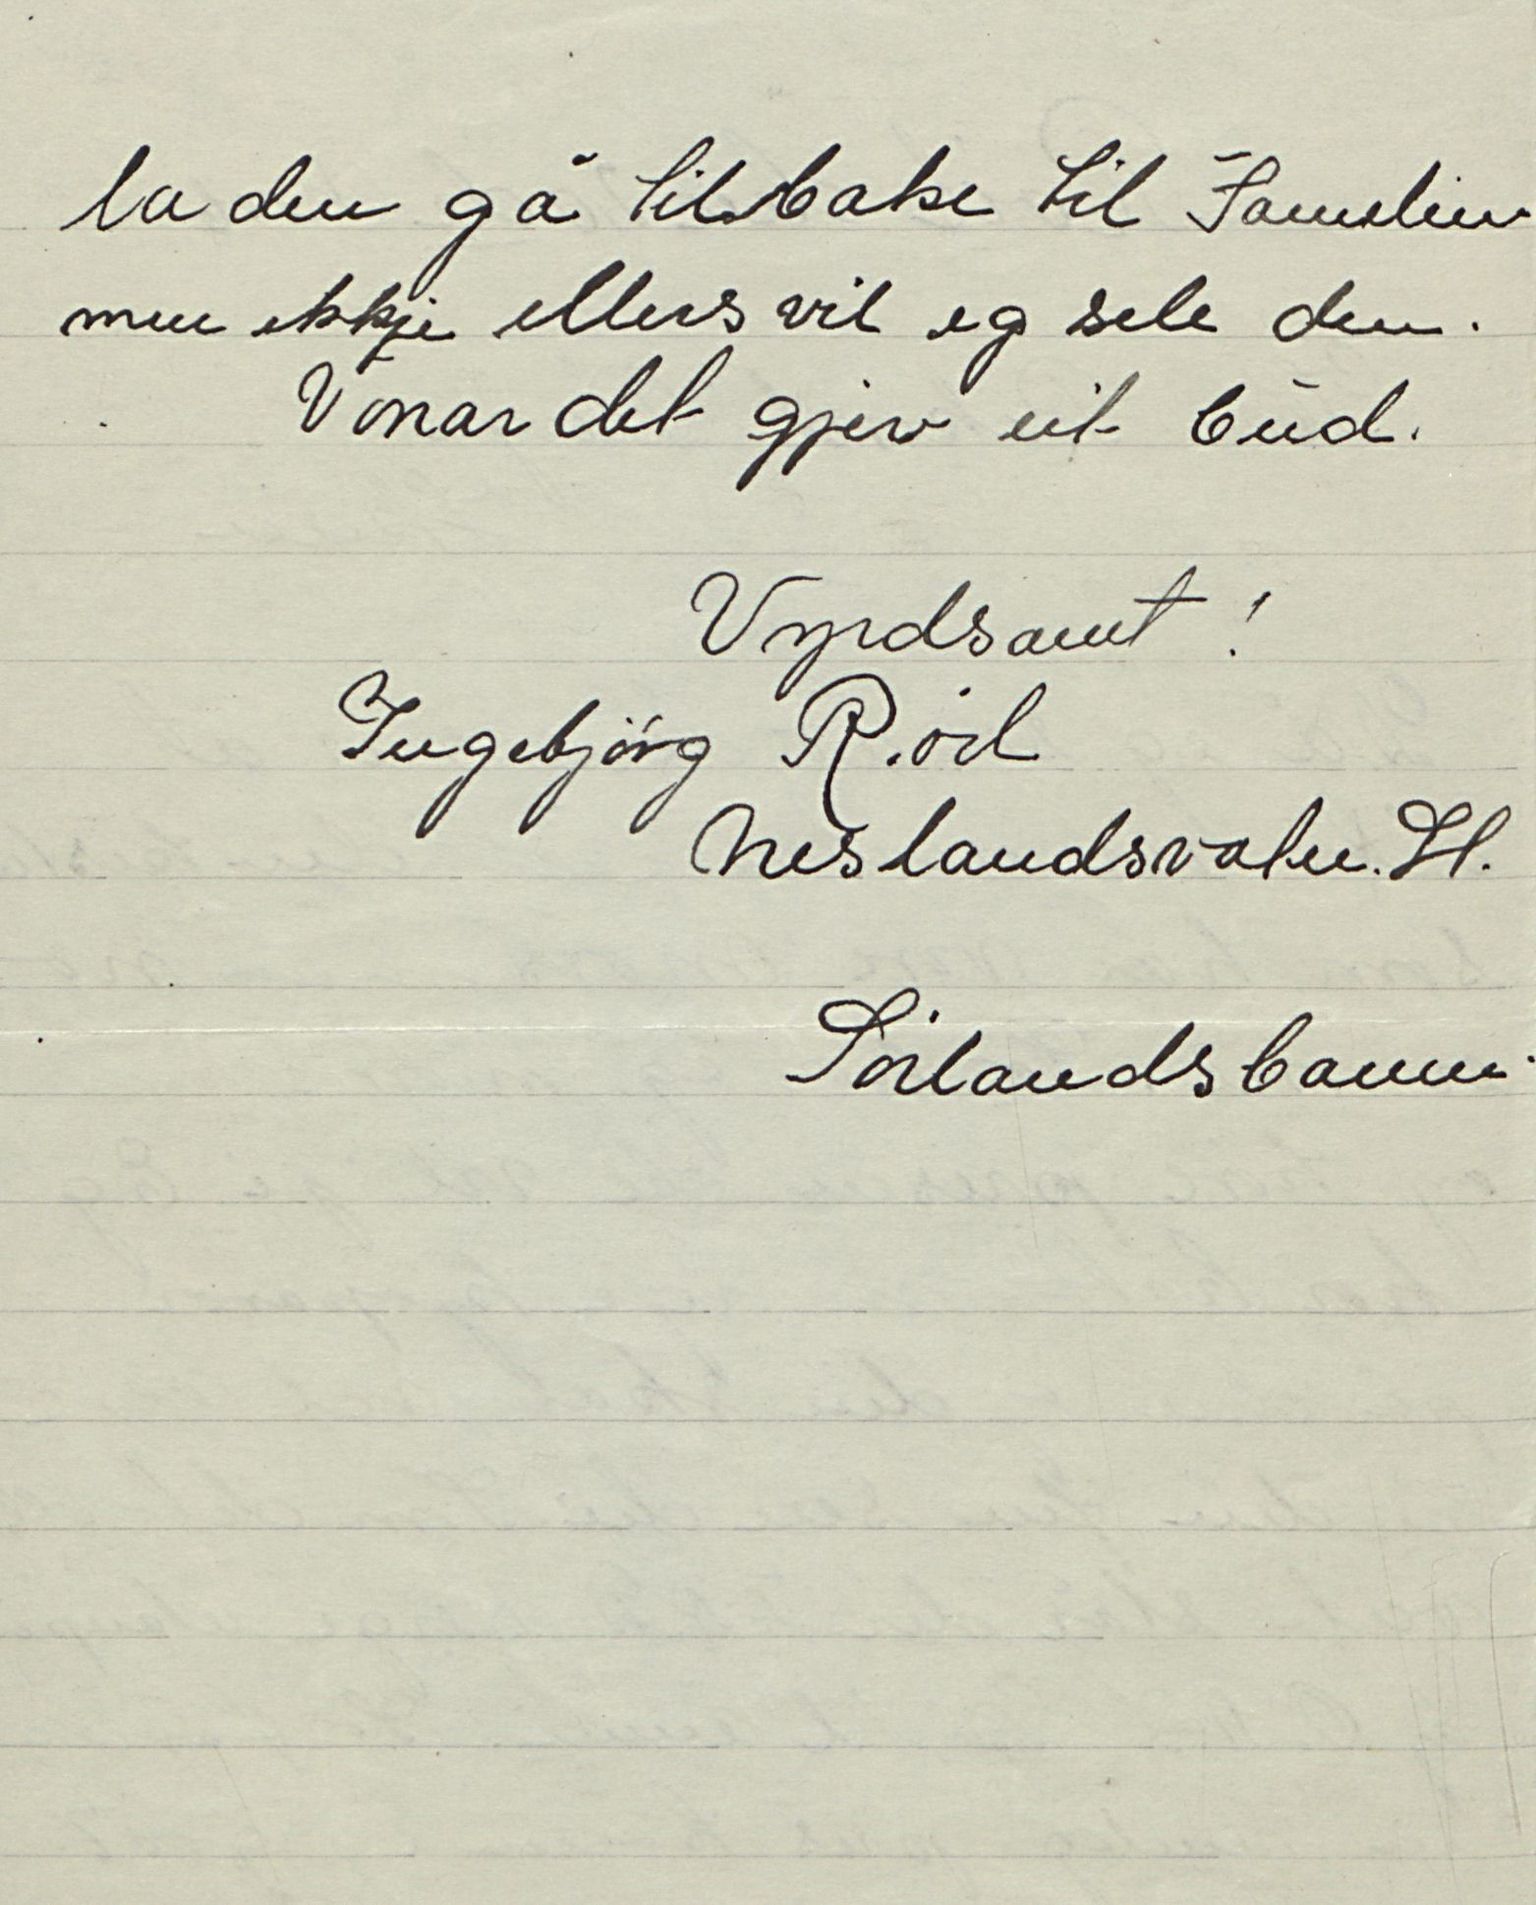 la den gå tilbake til Familien
men ekkje ellers vil eg sele den.
Vonar det gjev eit bud.
Vyrdsamt!
Ingebjörg R.öd
Neslandsvatn. St.
Sörlandsbanen.